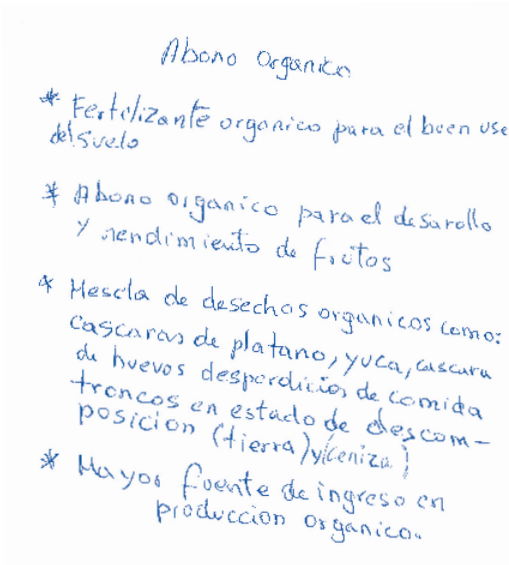 Abono Organico
* Fertilizante organico para el buen use
del Suelo
* Abono organico para el desarollo
y rendimiento de frutos
* Mescla de desechos organicos como:
cascaras de platano, yuca, cascara
de huevos desperdicios de comida
troncos en estado de descom-
posicion (tierra) y (ceniza)
* Mayor fuente de ingreso en
produccion organico.